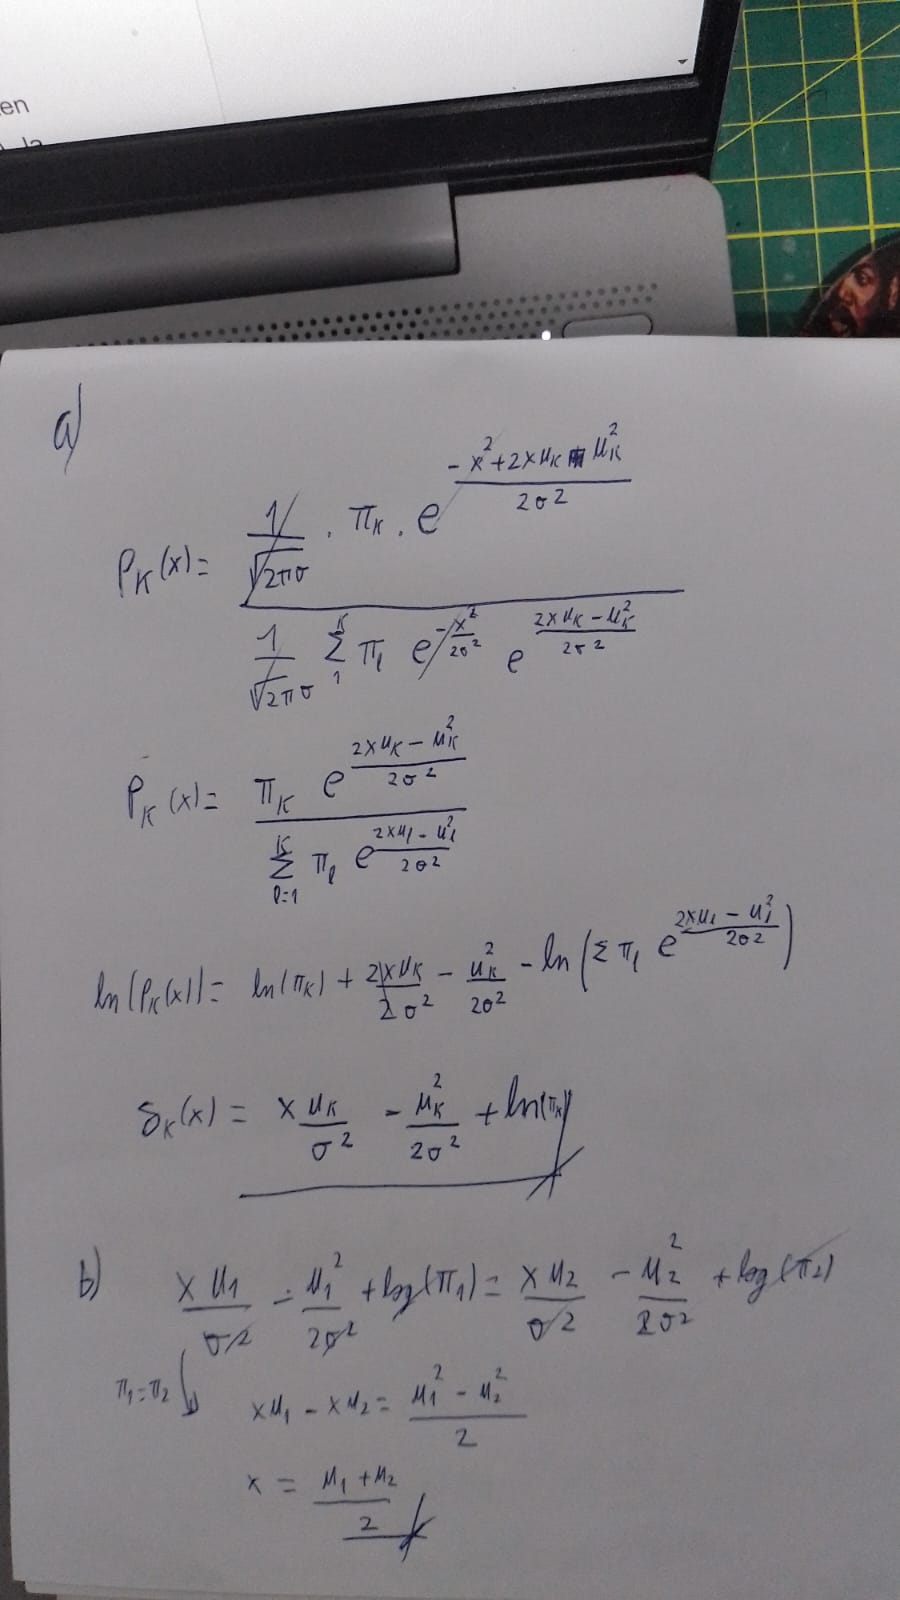 en
la
a)
P_K(x) = \frac{\frac{1}{\sqrt{2π}σ} · π_K · e^{\frac{-x^2 + 2xμ_K - μ_K^2}{2σ^2}}}{\frac{1}{\sqrt{2π}σ} \sum_1^K π_l e^{-\frac{x^2}{2σ^2}} e^{\frac{2xμ_K - μ_K^2}{2σ^2}}}
P_K(x) = \frac{π_K e^{\frac{2xμ_K - μ_K^2}{2σ^2}}}{\sum_{l=1}^K π_l e^{\frac{2xμ_l - μ_l^2}{2σ^2}}}
ln(P_K(x)) = ln(π_K) + \frac{2xμ_K}{2σ^2} - \frac{μ_K^2}{2σ^2} - ln(Σ π_l e^{\frac{2xμ_l - μ_l^2}{2σ^2}})
δ_K(x) = \frac{xμ_K}{σ^2} - \frac{μ_K^2}{2σ^2} + ln(π_K)
b) \frac{xμ_1}{σ^2} - \frac{μ_1^2}{2σ^2} + log(π_1) = \frac{xμ_2}{σ^2} - \frac{μ_2^2}{2σ^2} + log(π_2)
π_1 = π_2 ↓ xμ_1 - xμ_2 = \frac{μ_1^2 - μ_2^2}{2}
x = \frac{μ_1 + μ_2}{2}